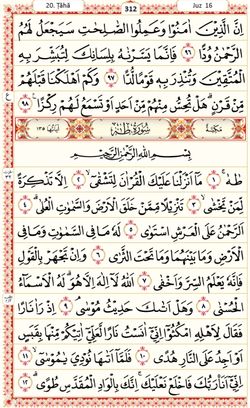 20. Ṭāhā 312 Juz 16
اِنَّ الَّذِيْنَ اٰمَنُوْا وَعَمِلُوا الصّٰلِحٰتِ سَيَجْعَلُ لَهُمُ
الرَّحْمٰنُ وُدًّا ٩٦ فَاِنَّمَا يَسَّرْنٰهُ بِلِسَانِكَ لِتُبَشِّرَ بِهِ
الْمُتَّقِيْنَ وَتُنْذِرَ بِهٖ قَوْمًا لُّدًّا ٩٧ وَكَمْ اَهْلَكْنَا قَبْلَهُمْ
مِّنْ قَرْنٍ ۗ هَلْ تُحِسُّ مِنْهُمْ مِّنْ اَحَدٍ اَوْ تَسْمَعُ لَهُمْ رِكْزًا ٩٨
مَكِّيَّة سُوْرَةُ طٰهٰ اٰيَاتُهَا ١٣٥
بِسْمِ اللّٰهِ الرَّحْمٰنِ الرَّحِيْمِ
طٰهٰ ١ مَآ اَنْزَلْنَا عَلَيْكَ الْقُرْاٰنَ لِتَشْقٰٓى ٢ اِلَّا تَذْكِرَةً
لِّمَنْ يَّخْشٰى ٣ تَنْزِيْلًا مِّمَّنْ خَلَقَ الْاَرْضَ وَالسَّمٰوٰتِ الْعُلٰى ٤
اَلرَّحْمٰنُ عَلَى الْعَرْشِ اسْتَوٰى ٥ لَهٗ مَا فِى السَّمٰوٰتِ وَمَا فِى
الْاَرْضِ وَمَا بَيْنَهُمَا وَمَا تَحْتَ الثَّرٰى ٦ وَاِنْ تَجْهَرْ بِالْقَوْلِ
فَاِنَّهٗ يَعْلَمُ السِّرَّ وَاَخْفٰى ٧ اَللّٰهُ لَآ اِلٰهَ اِلَّا هُوَ ۗ لَهُ الْاَسْمَآءُ
الْحُسْنٰى ٨ وَهَلْ اَتٰىكَ حَدِيْثُ مُوْسٰى ٩ اِذْ رَاٰ نَارًا
فَقَالَ لِاَهْلِهِ امْكُثُوْٓا اِنِّيْٓ اٰنَسْتُ نَارًا لَّعَلِّيْٓ اٰتِيْكُمْ مِّنْهَا بِقَبَسٍ
اَوْ اَجِدُ عَلَى النَّارِ هُدًى ١٠ فَلَمَّآ اَتٰىهَا نُوْدِيَ يٰمُوْسٰى ١١
اِنِّيْٓ اَنَا رَبُّكَ فَاخْلَعْ نَعْلَيْكَ ۚ اِنَّكَ بِالْوَادِ الْمُقَدَّسِ طُوًى ١٢